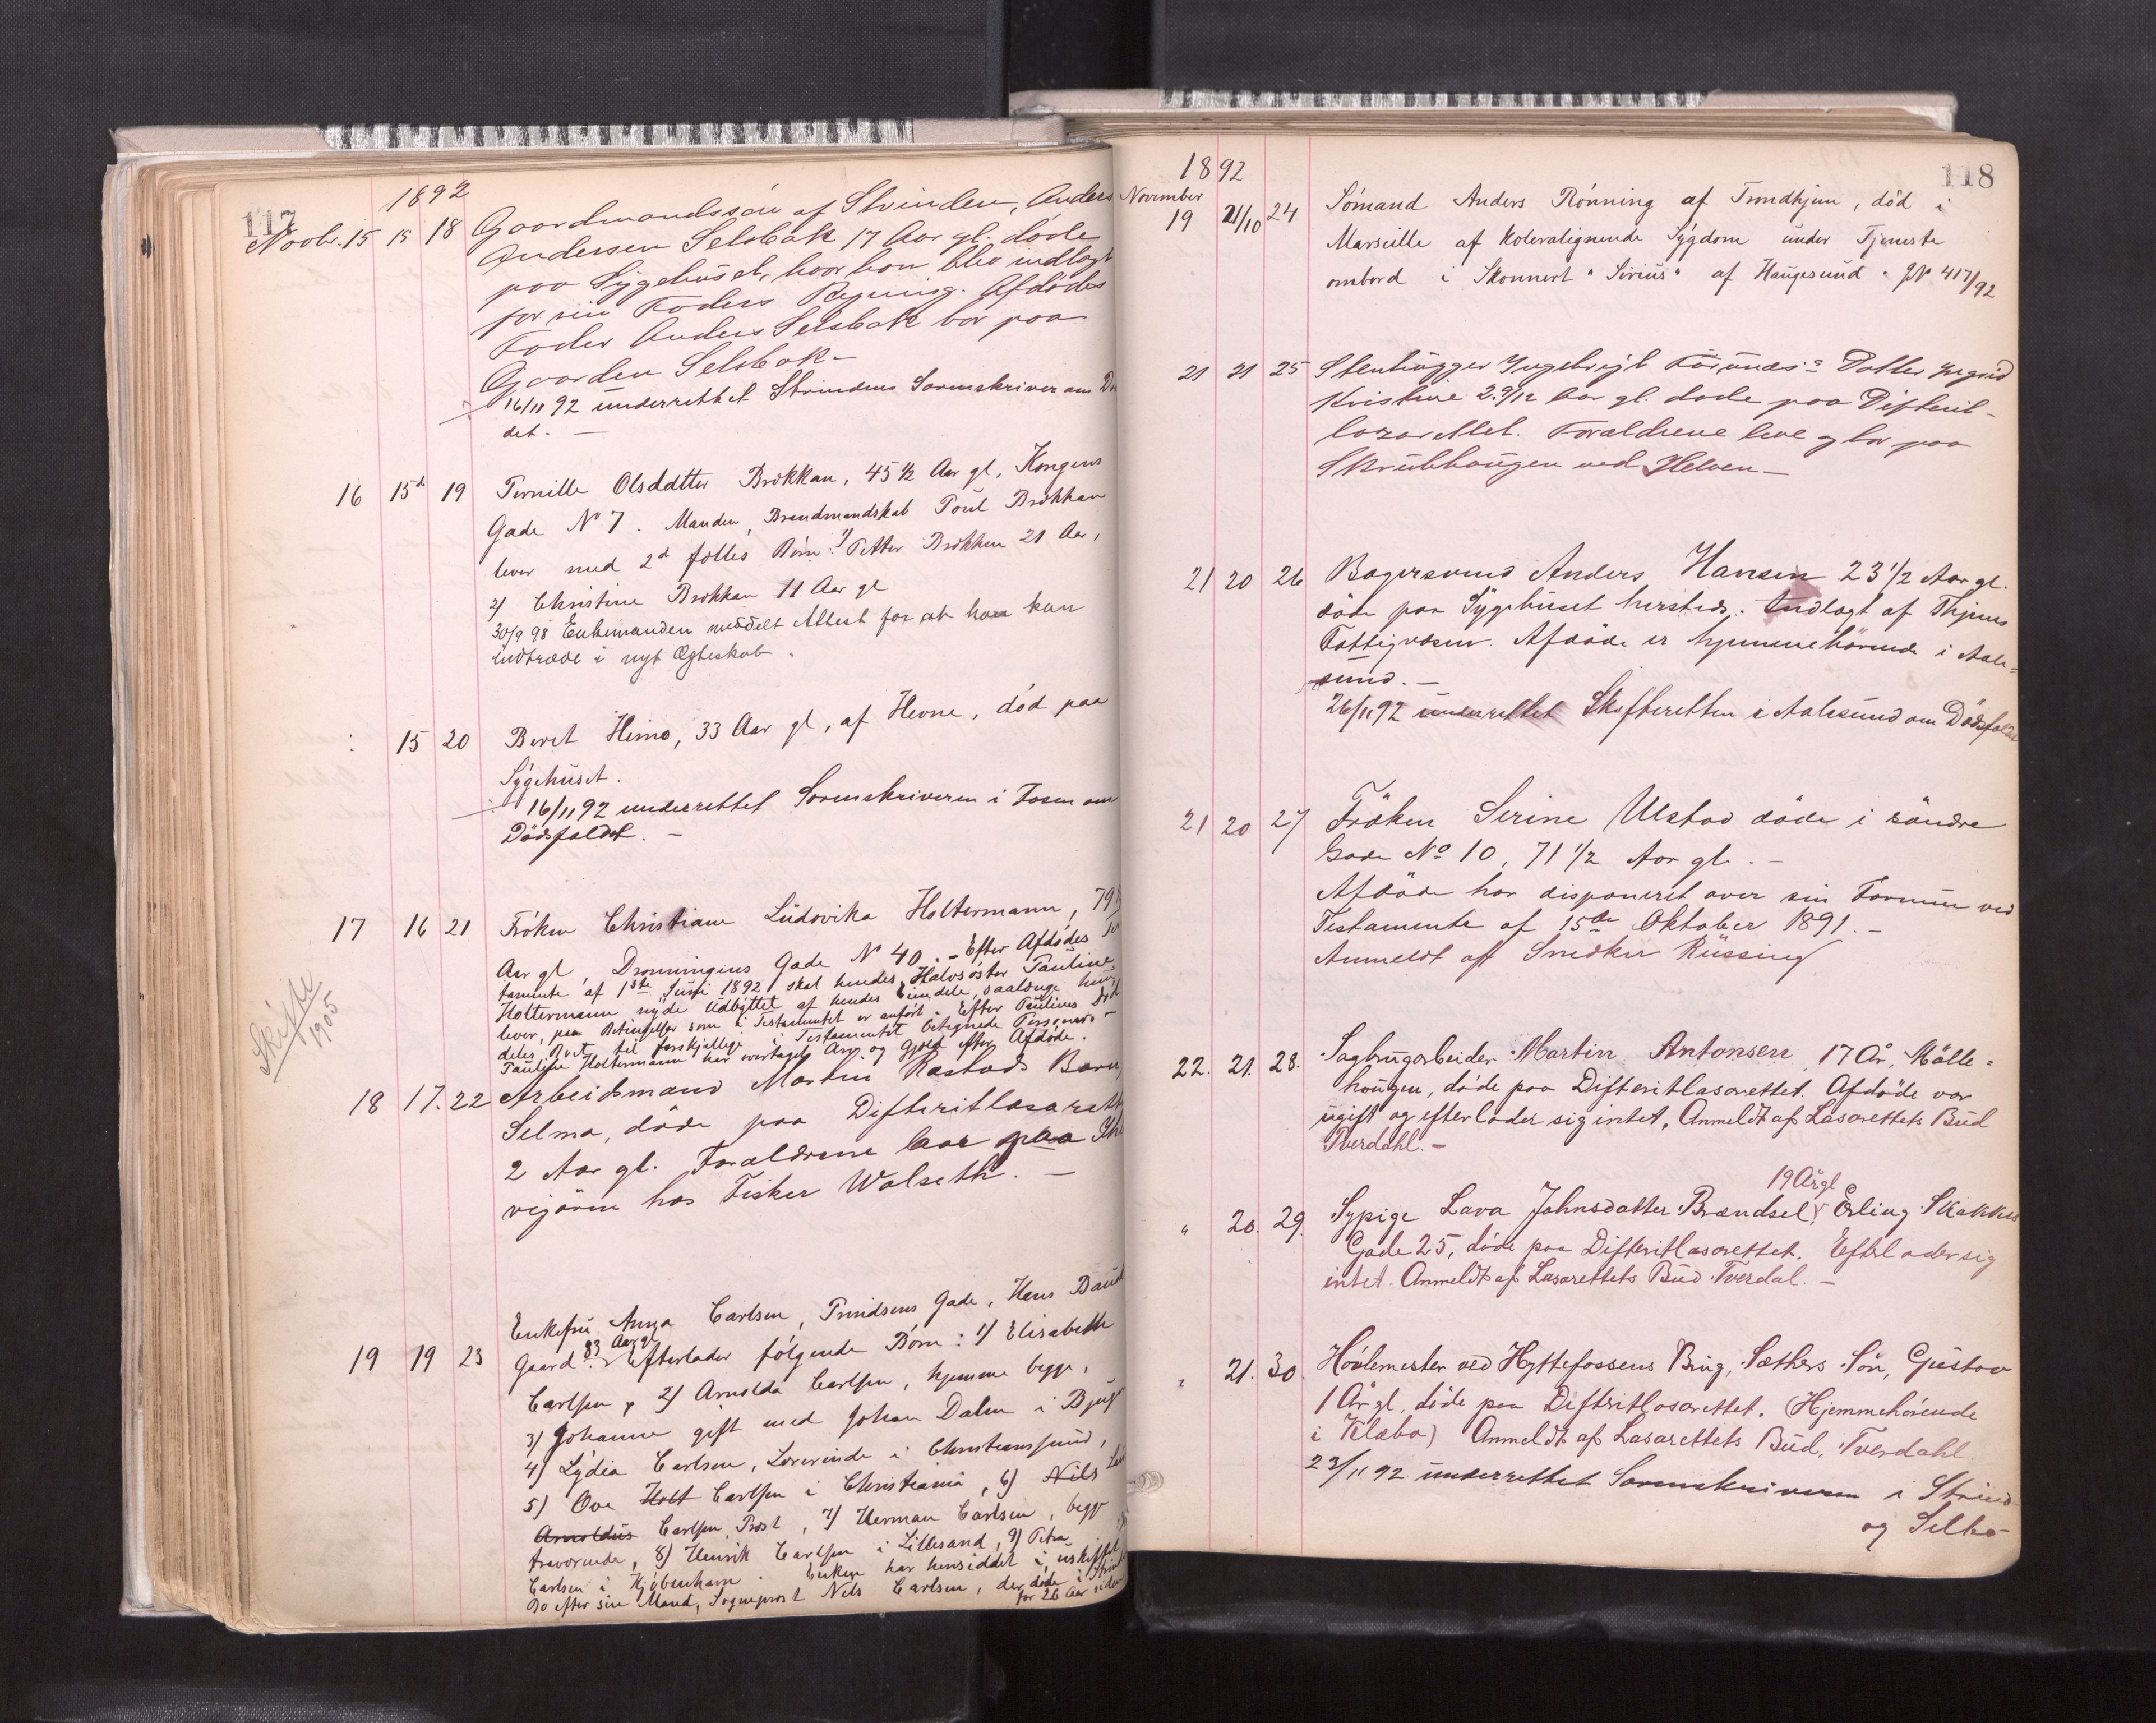 117
1892
Novbr. 15 15 18 Gaardmandssøn af Strinden, Anders
Andersen Selsbak 17 Aar gl. døde
paa Sygehuset, hvor han blev indlagt
for sin Faders Regning. Afdødes
Fader Anders Selsbak bor paa
Gaarden Selsbak-
16/11 92 underrettet Strindens Sorenskriver om Dø
det. -
16 15d 19 Pernille Olsdatter Brøkkan, 45 1/2 Aar gl, Kongens
Gade No 7. Manden, Brandmandskab Poul Brøkkan
lever med 2d fælles Børn: 1) Petter Brøkkan 21 Aar,
2) Christine Brøkkan 11 Aar gl
30/9 98 Enkemanden meddelt Attest for at han kan
indtræde i nyt Ægteskab.
15 20 Beret Hemo, 33 Aar gl, af Hevne, død paa
Sygehuset.
16/11 92 underrettet Sorenskriveren i Fosen om
Dødsfaldet. -
17 16 21 Frøken Christiane Ludovika Holtermann, 79
Aar gl, Dronningens Gade No 40. - Efter Afdødes Te
tamente af 1ste Juni 1892 skal hendes Halvsøster Pauline
Holtermann nyde Udbyttet af hendes Eiendele, saalænge hun
lever, paa Betingelser som i Testamentet er anført. Efter Paulines Død
deles Boet til forskjellige i Testamentet betegnede Personer -
Pauline Holtermann har overtaget Arv og Gjæld efter Afdøde.
Skifte
1905
18 17. 22 Arbeidsmand Martin Rastads Barn,
Selma, døde paa Difteritlasarett
2 Aar gl. Forældrene bor paa
vigøren hos Fisker Walseth. -
Enkefru Anna Carlsen, Prindsens Gade, Hans Baud
83 Aar gl
19 19 23 Gaard. Efterlader følgende Børn: 1) Elisabeth
Carlsen, 2) Arnolda Carlsen, hjemme begge,
3) Johanne gift med Johan Dalen i Bjug
4) Lydia Carlsen, Lærerinde i Christianssund,
5) Ove Holt Carlsen i Christiania, 6) Nils
Arnoldus Carlsen, Prost, 7) Herman Carlsen, begge
fraværende, 8) Henrik Carlsen i Lillesand, 9) Petra
Carlsen i Kjøbenhavn. Enken har hensiddet i uskiftet
Bo efter sin Mand, Sogneprest Nils Carlsen, der døde i Strind
for 26 Aar siden
118
1892
November
19 21/10 24 Sømand Anders Rønning af Trondhjem, død i
Marseille af koleralignende Sygdom under Tjeneste
ombord i Skonnert "Sirius" af Haugesund. JN 417/92
21 21 25 Stenhugger Ingebrigt Förunds: Datter Ingrid
Kristine 2 9/12 Aar gl. døde paa Difterit-
lazarettet. Forældrene leve og bor paa
Skrubhaugen ved Helven -
21 20 26 Bagersvend Anders Hansen 23 1/2 Aar gl.
døde paa Sygehuset hersteds. Indlagt af Thjems
Fattigvæsen. Afdøde er hjemmehørende i Aale-
sund. -
26/11 92 underrettet Skifteretten i Aalesund om Dødsfaldet
21 20 27 Frøken Serine Ulstad døde i søndre
Gade No 10, 71 1/2 Aar gl. -
Afdøde har disponeret over sin Formue ved
Testamente af 15de Oktober 1891. -
Anmeldt af Snedker Rüssing
22. 21. 28. Sagbrugarbeider Martin Antonsen, 17 År, Mölle-
haugen, døde paa Difteritlasarettet. Afdøde var
ugift og efterlader sig intet. Anmeldt af Lasarettets Bud
Tverdahl. -
19 År gl
" 20. 29. Sypige Lava Johnsdatter Brændsel, Erling Skakkes
Gade 25, døde paa Difteritlasarettet. Efterlader sig
intet. Anmeldt af Lasarettets Bud Tverdal. -
" 21. 30. Høvlemester ved Hyttefossens Brug, Sæthers Søn, Gustav
1 År gl, døde paa Difteritlasarettet. (Hjemmehørende
i Klæbo) Anmeldt af Lasarettets Bud, Tverdahl
23/11 92 underrettet Sorenskriveren i Strind
og Selbo-